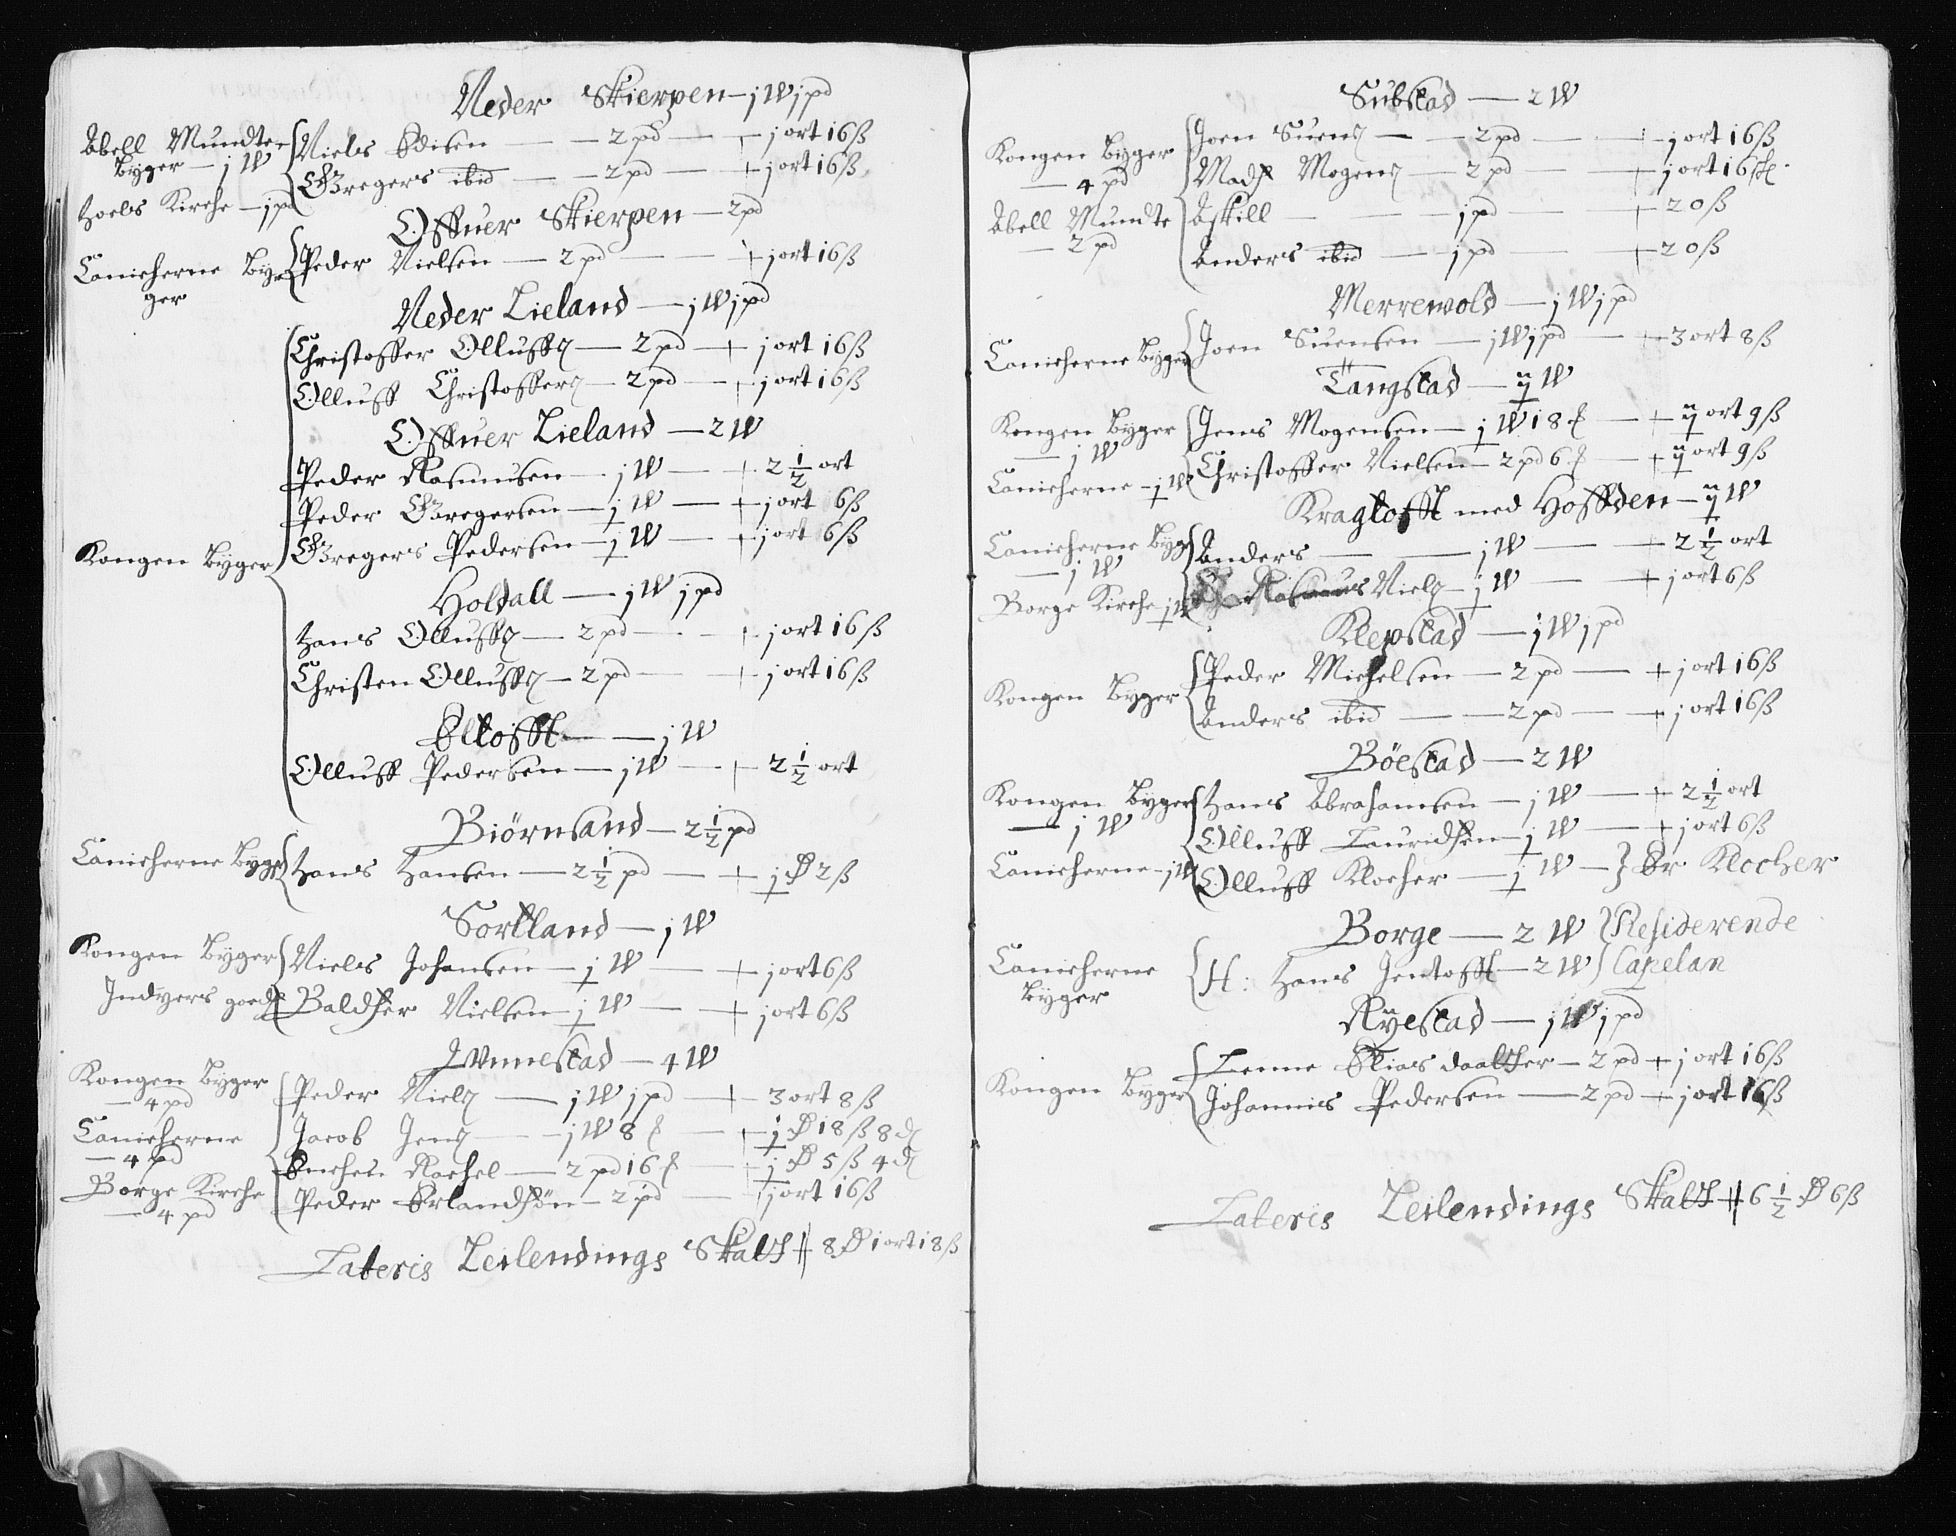 Neder Skierpen – j W j pd
Abell Mundte
Byger – j W
Niels Edisen – 2 pd – j ort 16 ß
Gregers ibid – 2 pd – j ort 16 ß
Hoels Kirche – j pd
Offuer Skierpen – 2 pd
Canicherne Byger
Peder Nielsen – 2 pd – j ort 16 ß
Neder Lieland – j W j pd
Christoffer Olluffs – 2 pd – j ort 16 ß
Olluff Christoffers – 2 pd – j ort 16 ß
Offuer Lieland – 2 W
Peder Rasmusen – j W – 2 1/2 ort
Peder Gregersen – j W – j ort 6 ß
Kongen Byger
Gregers Pedersen – j W – j ort 6 ß
Holdall – j W j pd
Hans Olluffs – 2 pd – j ort 16 ß
Christen Olluffs – 2 pd – j ort 16 ß
Eltofft – j W
Olluff Pedersen – j W – 2 1/2 ort
Biörnsand – 2 1/2 pd
Canicherne Byger
Hans Hansen – 2 1/2 pd – j D 2 ß
Sortland – j W
Kongen Byger
Niels Johansen – j W – j ort 6 ß
Indyers goeds
Baldtzer Nielsen – j W – j ort 6 ß
Wnnestad – 4 W
Kongen Byger
– 4 pd
Peder Niels – j W j pd – 3 ort 8 ß
Canicherne
– 4 pd
Jacob Jens – j W 8 – j D 18 ß 8 d
Enchen Rachel – 2 pd 16 – j D 5 ß 4 d
Borge Kirche
– 4 pd
Peder Erlandsøn – 2 pd – j ort 16 ß
Lateris Leilendings Skatt 8 D 1 ort 18 ß
Substad – 2 W
Kongen Byger
– 4 pd
Joen Suens – 2 pd – j ort 16 ß
Mads Mogens – 2 pd – j ort 16 ß
Abell Mundte
– 2 pd
Askill – j pd – 20 ß
Anders ibid – j pd – 20 ß
Merrewold – j W j pd
Canicherne Byger
Joen Suensen – j W j pd – 3 ort 8 ß
Tangstad – ij W
Kongen Byger
– j W
Jens Mogensen – j W 18 – ij ort 9 ß
Canicherne – j W
Christoffer Nielsen – 2 pd 6 – ij ort 9 ß
Kragtofft med Hoffden – ij W
Canicherne Byg
– j W
Anders – j W – 2 1/2 ort
Borge Kirche j W
Rasmus Niels – j W – j ort 6 ß
Klepstad – j W j pd
Kongen Byger
Peder Michelsen – 2 pd – j ort 16 ß
Anders ibid – 2 pd – j ort 16 ß
Böestad – 2 W
Kongen Byger
– j W
Hans Abrahamsen – j W – 2 1/2 ort
Olluff Lauridsen – j W – j ort 6 ß
Canicherne – j W
Olluff Klocher – j W – Er Klocher
Borge – 2 W Residerende
Canicherne
Byger
H: Hans Jentofft – 2 W Capelan
Ryestad – j W j pd
Kongen Byger
Lenne Elias daatter – 2 pd j ort 16 ß
Johannis Pedersen – 2 pd – j ort 16 ß
Lateris Leilendings Skatt 6 1/2 D 6 ß